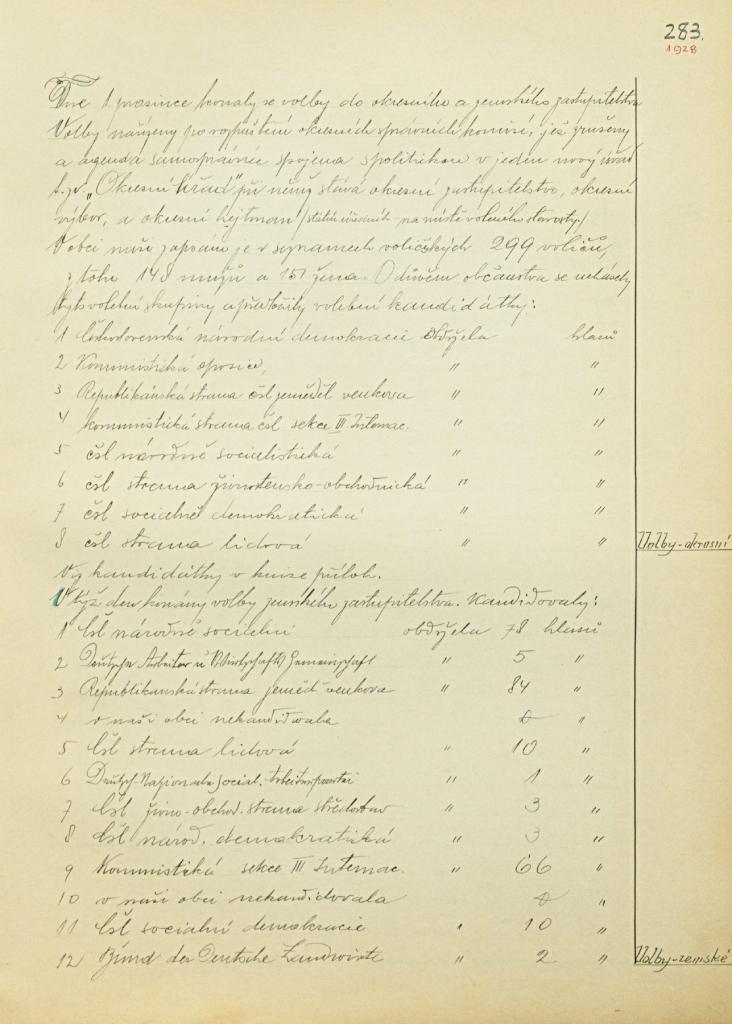 283.
1928
Dne 1 prosince konaly se volby do okresního a zemského zastupitelstva
Volby nařízeny po rozpuštění okresních správních komisí, jež zrušeny
a agenda samosprávná spojena s politickou v jeden nový úřad
t. zv. „Okresní úřad" při němž stává okresní zastupitelstvo, okresní
výbor, a okresní hejtman /státní úředník - na místě voleného starosty./
V obci naší zapsáno je v seznamech voličských 299 voličů,
z toho 148 mužů a 151 žena. O důvěru občanstva se ucházely
tyto volební skupiny a předložily volební kandidátky:
1 Českoslovenká národní demokracie obdržela hlasů
2 Kommunistická oposice, " "
3 Republikánská strana čsl zeměděl venkova " "
4 kommunistická strana čsl sekce III. Internac. " "
5 čsl národně socialistická " "
6 čsl strana živnostensko-obchodnická " "
7 čsl socialně demokratická " "
8 čsl strana lidová " "
Volby-okresní
Viz kandidátky v knize příloh.
Týž den konány volby zemského zastupitelstva. Kandidovaly:
1 Čsl národně socialní obdržela 78 hlasů
2 Deutsche Arbeiter u Wirtschafts Gemeinschaft " 5 "
3 Republikánská strana zeměd venkova " 84 "
4 v naší obci nekandidovala 0 "
5 Čsl strana lidová " 10 "
6 Deutsch-Nazionale social. Arbeiterpartei " 1 "
7 Čsl živno-obchod. strana středostav " 3 "
8 Čsl národ. demokratická " 3 "
9 Kommunistická sekce III Internac. " 66 "
10 v naší obci nekandidovala 0 "
11 Čsl socialní demokracie " 10 "
12 Bund der Deutsche Landwirte " 2 "
Volby-zemské